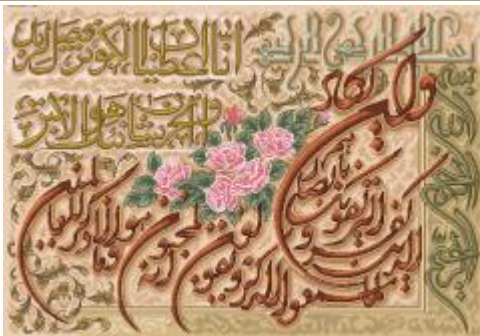 بسم الله الرحمن الرحيم
انا اعطيناك الكوثر فصل لربك
وانحر ان شانئك هو الابتر
وان يكاد
الذين كفروا ليزلقونك بابصارهم
لما سمعوا الذكر ويقولون انه لمجنون وما هو الا ذكر للعالمين